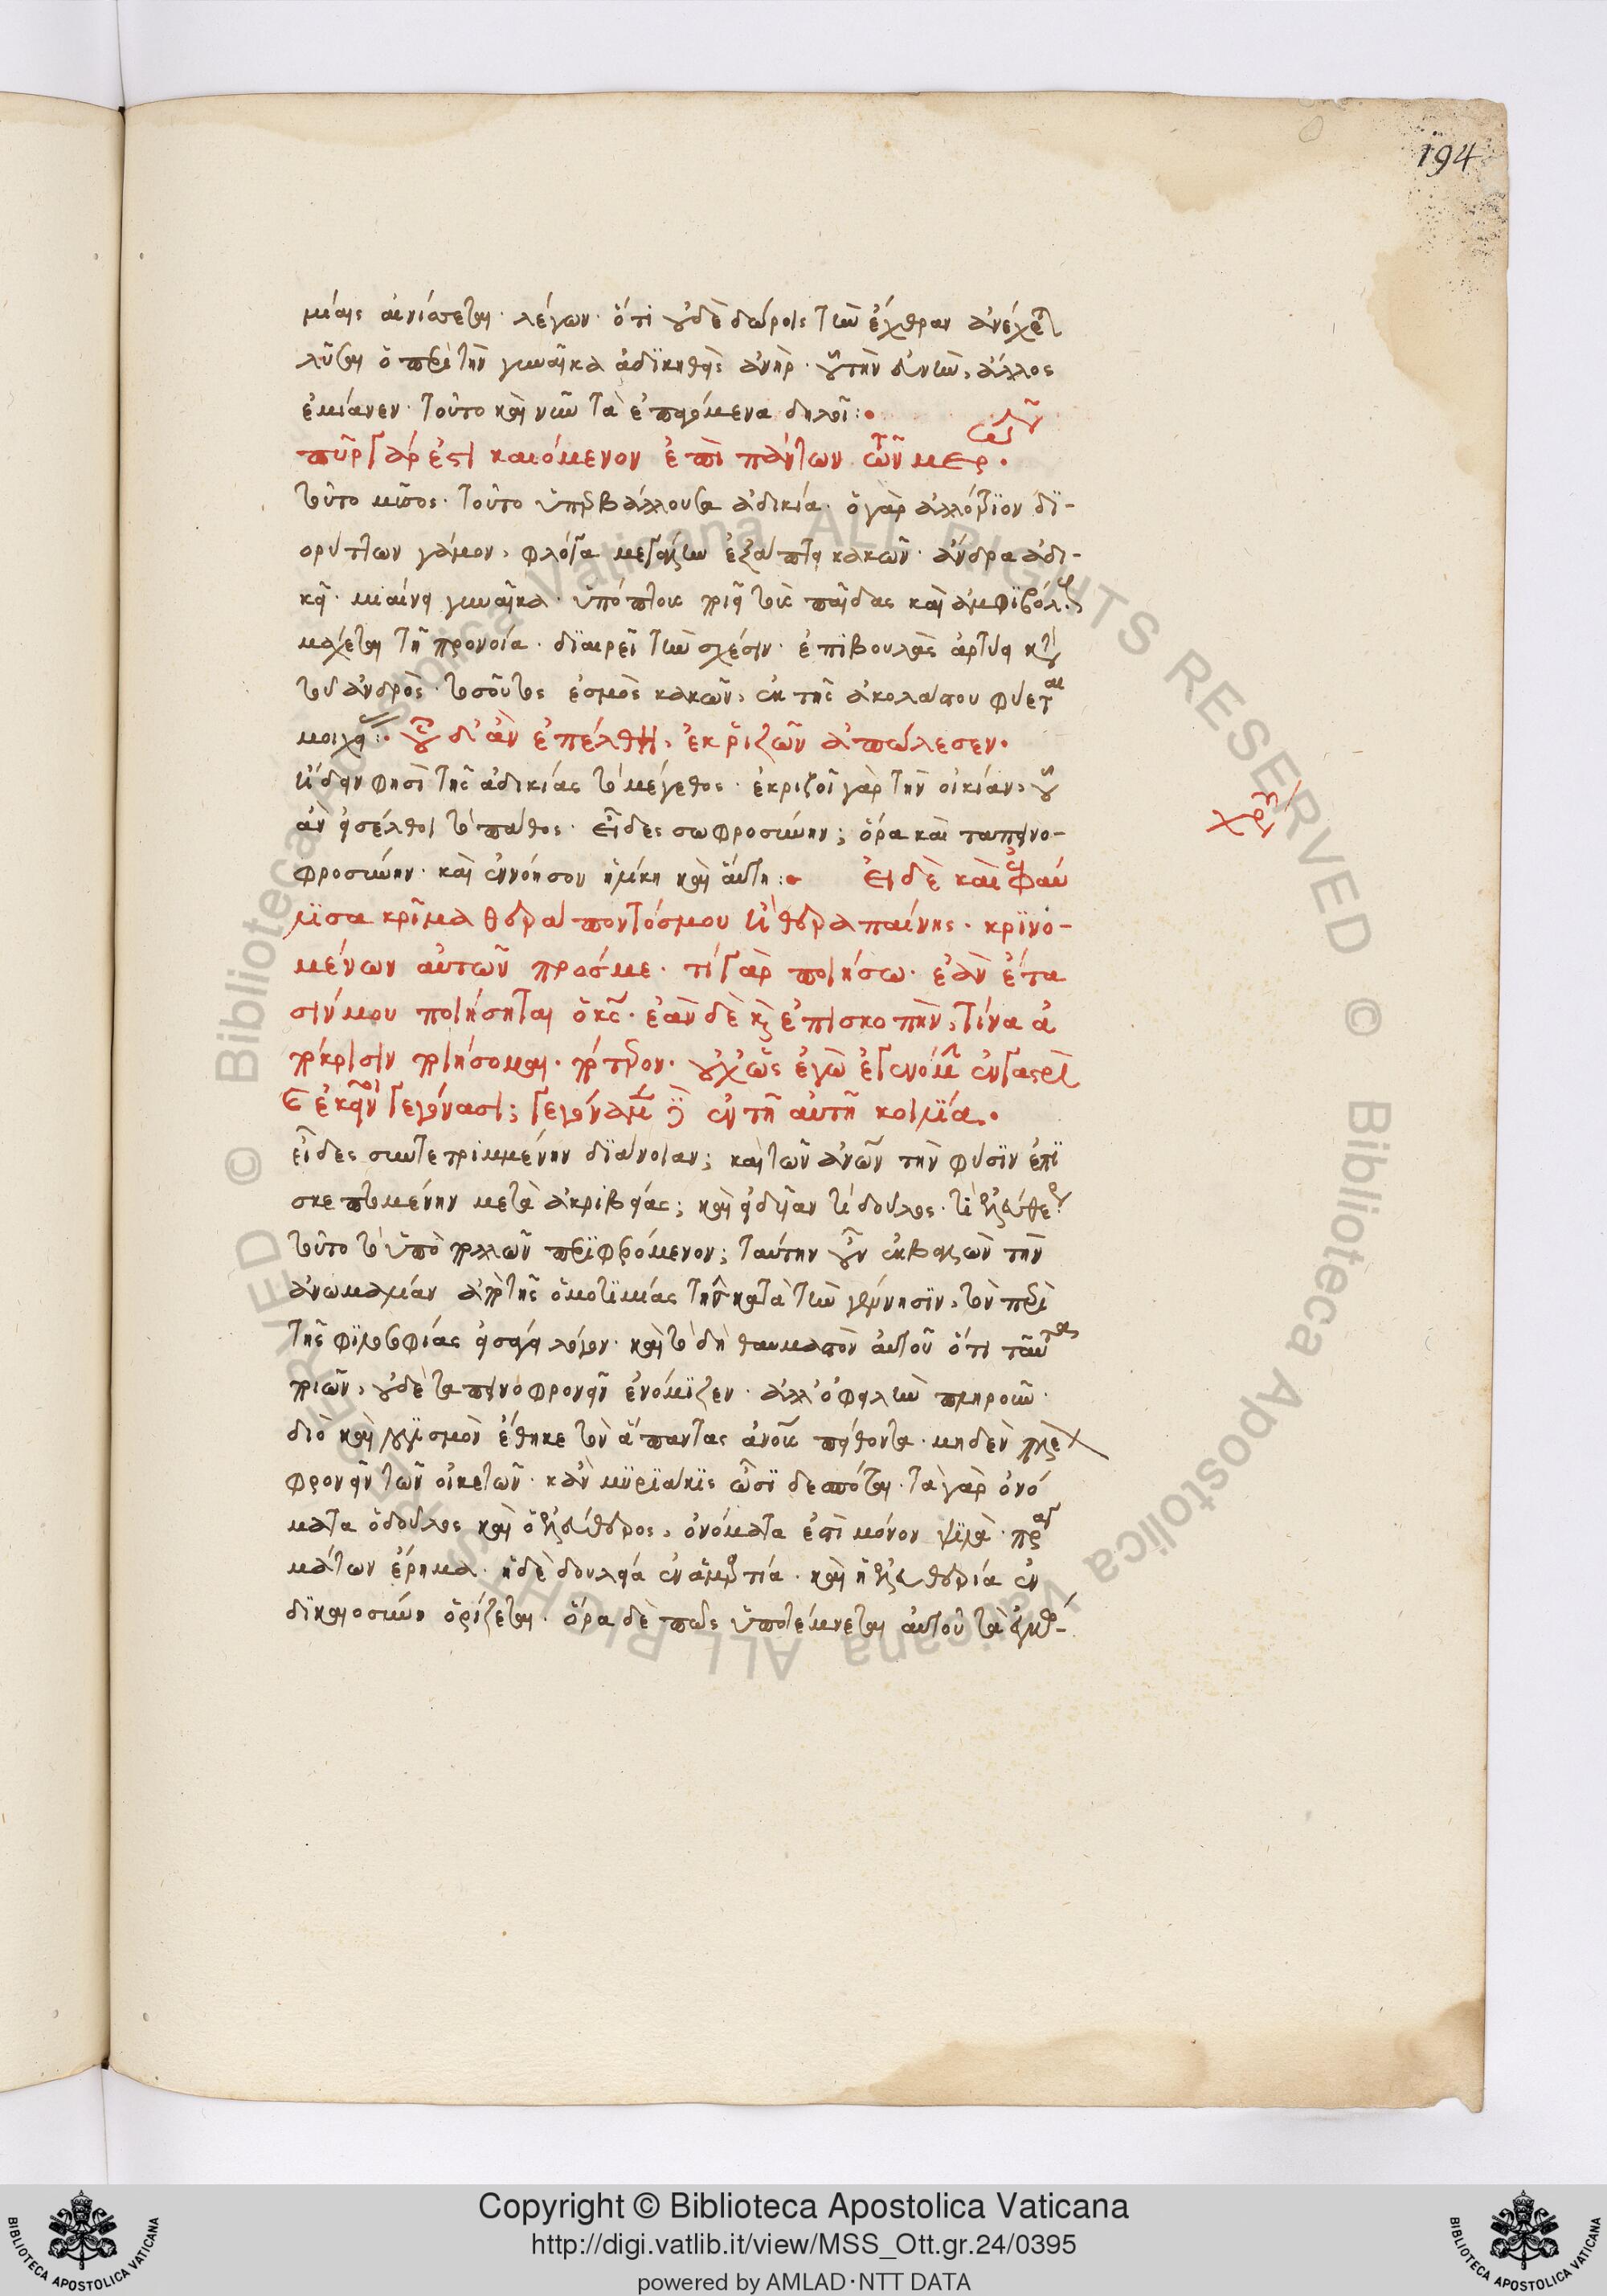 194
μίαις αἰνίττεται· λέγων· ὅτι οὐδὲ δώροις τὴν ἔχθραν ἀνέχεται
λῦσαι ὁ περὶ τὴν γυναῖκα ἀδικηθεὶς ἀνήρ·
ἐμίανεν· τοῦτο καὶ νῦν τὰ ἐπαγόμενα δηλοῖ:
πῦρ γάρ ἐστι καιόμενον ἐπὶ πάντων τῶν μερῶν
τοῦτο μῖσος· τοῦτο ὑπερβάλλουσα ἀδικία· ὁ γὰρ ἀλλότριον δι-
ορύττων γάμον, φλόγα μεγίστην ἐξάπτει κακῶν· ἄνδρα ἀδι-
κεῖ· μιαίνει γυναῖκα· ὑπόπτους ποιεῖ τοὺς παῖδας καὶ ἀμφιβόλους
μάχεται τῇ προνοίᾳ· διαιρεῖ τὴν σχέσιν· ἐπιβουλὰς ἀρτύει κατὰ
τοῦ ἀνδρός· τοσοῦτος ἐσμὸς κακῶν, ἐκ τῆς ἀκολάστου φύεται
μοιχείας: οὗ δ' ἂν ἐπέλθῃ, ἐκ ῥιζῶν ἀπώλεσεν·
εἶδες φησὶ τῆς ἀδικίας τὸ μέγεθος· ἐκριζοῖ γὰρ τὴν οἰκίαν, οὗ
ἂν εἰσέλθοι τὸ πάθος· εἶδες σωφροσύνην; ὅρα καὶ ταπεινο-
φροσύνην· καὶ ἐννόησον ἡλίκη καὶ αὕτη: εἰ δὲ καὶ ἐφαύ
λισα κρῖμα θεράποντός μου ἢ θεραπαίνης· κρινο-
μένων αὐτῶν πρός με· τί γὰρ ποιήσω· ἐὰν ἔτα
σίν μου ποιήσηται ὁ κς· ἐὰν δὲ καὶ ἐπισκοπὴν, τίνα ἀ
πόκρισιν ποιήσομαι· πότερον· οὐχ ὡς ἐγὼ ἐγενόμην ἐν γαστρὶ
καὶ ἐκεῖνοι γεγόνασι; γεγόναμεν δὲ ἐν τῇ αὐτῇ κοιλίᾳ·
εἶδες συντετριμμένην διάνοιαν; καὶ τῶν ἀνων τὴν φύσιν ἐπι
σκεπτομένην μετὰ ἀκριβείας; καὶ εἰδυῖαν τί δοῦλος· τί ἐλεύθερος
τοῦτο τὸ ὑπὸ πολλῶν περιφερόμενον; ταύτην οὖν ἐκβάζων τὴν
ἀνωμαλίαν ἀπὸ τῆς ὁμοτιμίας τῆς κατὰ τὴν γέννησιν, τὸν περὶ
τῆς φιλοσοφίας εἰσάγει λόγον· καὶ τὸ δὴ θαυμαστὸν αὐτοῦ ὅτι ταῦτα
ποιῶν, οὐδὲ ταπεινοφρονεῖν ἐνόμιζεν· ἀλλ' ὀφειλὴν πληροῦν·
διὸ καὶ λογισμὸν ἔθηκε τὸν ἅπαντας ἀνους πείθοντα· μηδὲν πλέον
φρονεῖν τῶν οἰκετῶν· κἂν μυριάκις ὦσι δεσπόται· τὰ γὰρ ὀνό
ματα ὁ δοῦλος καὶ ὁ ἐλεύθερος, ὀνόματα ἐστὶ μόνον ψιλὰ· πραγ
μάτων ἔρημα· ἡ δὲ δουλεία ἐν ἁμαρτίᾳ· καὶ ἡ ἐλευθερία ἐν
δικαιοσύνῃ ὁρίζεται· ὅρα δὲ πῶς ὑποτέμνεται αὐτοῦ τὰ
Copyright © Biblioteca Apostolica Vaticana
http://digi.vatlib.it/view/MSS_Ott.gr.24/0395
powered by AMLAD·NTT DATA